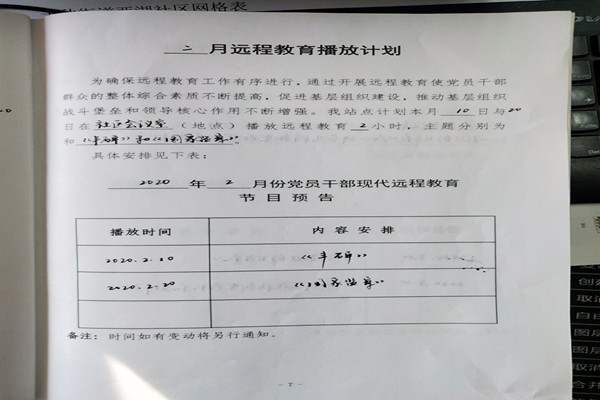 二月远程教育播放计划
为确保远程教育工作有序进行，通过开展远程教育使党员干部
群众的整体综合素质不断提高，促进基层组织建设，推动基层组织
战斗堡垒和领导核心作用不断增强。我站点计划本月10日与20
日在社区会议室（地点）播放远程教育2小时，主题分别为
和《丰碑》和《国家监察》。
具体安排见下表：
2020年2月份党员干部现代远程教育
节目预告
播放时间 内容安排
2020.2.10 《丰碑》
2020.2.20 《国家监察》
备注：时间如有变动将另行通知。
- 7 -
社区网格表
取消
自由
图层
图层
取消
合并